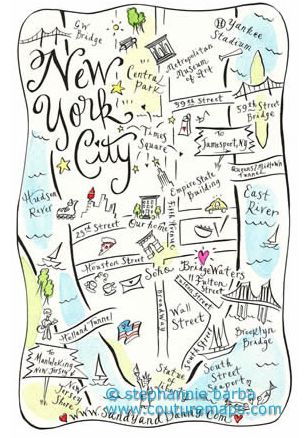 GW
Bridge
Yankee
Stadium
New
York
City
Metropolitan
Museum
of Art
Central
Park
59th Street
59th Street
Bridge
Times
Square
To
Jamesport, NY
Queens Midtown
Tunnel
Empire State
Building
Hudson
River
East
River
Fifth Avenue
23rd Street
Our home
Houston Street
Soho
BridgeWaters
11 Fulton
Street
Fulton Street
Broadway
Wall
Street
Holland Tunnel
Brooklyn
Bridge
South Street
South
Street
Seaport
To
Mantoloking
New Jersey
New
Jersey
Shore
Statue
of Liberty
© stephannie barba
www.couturemaps.com